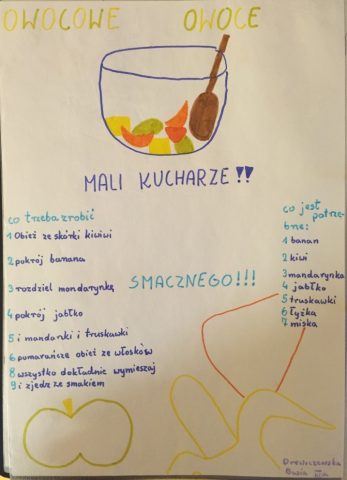 OWOCOWE OWOCE
MALI KUCHARZE!!
co trzeba zrobić
1 Obież ze skórki kiwiwi
2 pokrój banana
3 rozdziel mandarynkę
4 pokrój jabłko
5 i mandarki i truskawki
6 pomarańcze obież ze włosków
8 wszystko dokładnie wymieszaj
9 i zjedz ze smakiem
SMACZNEGO!!!
co jest potrze-
bne:
1 banan
2 kiwi
3 mandarynka
4 jabłko
5 truskawki
6 łyżka
7 miska
Basia